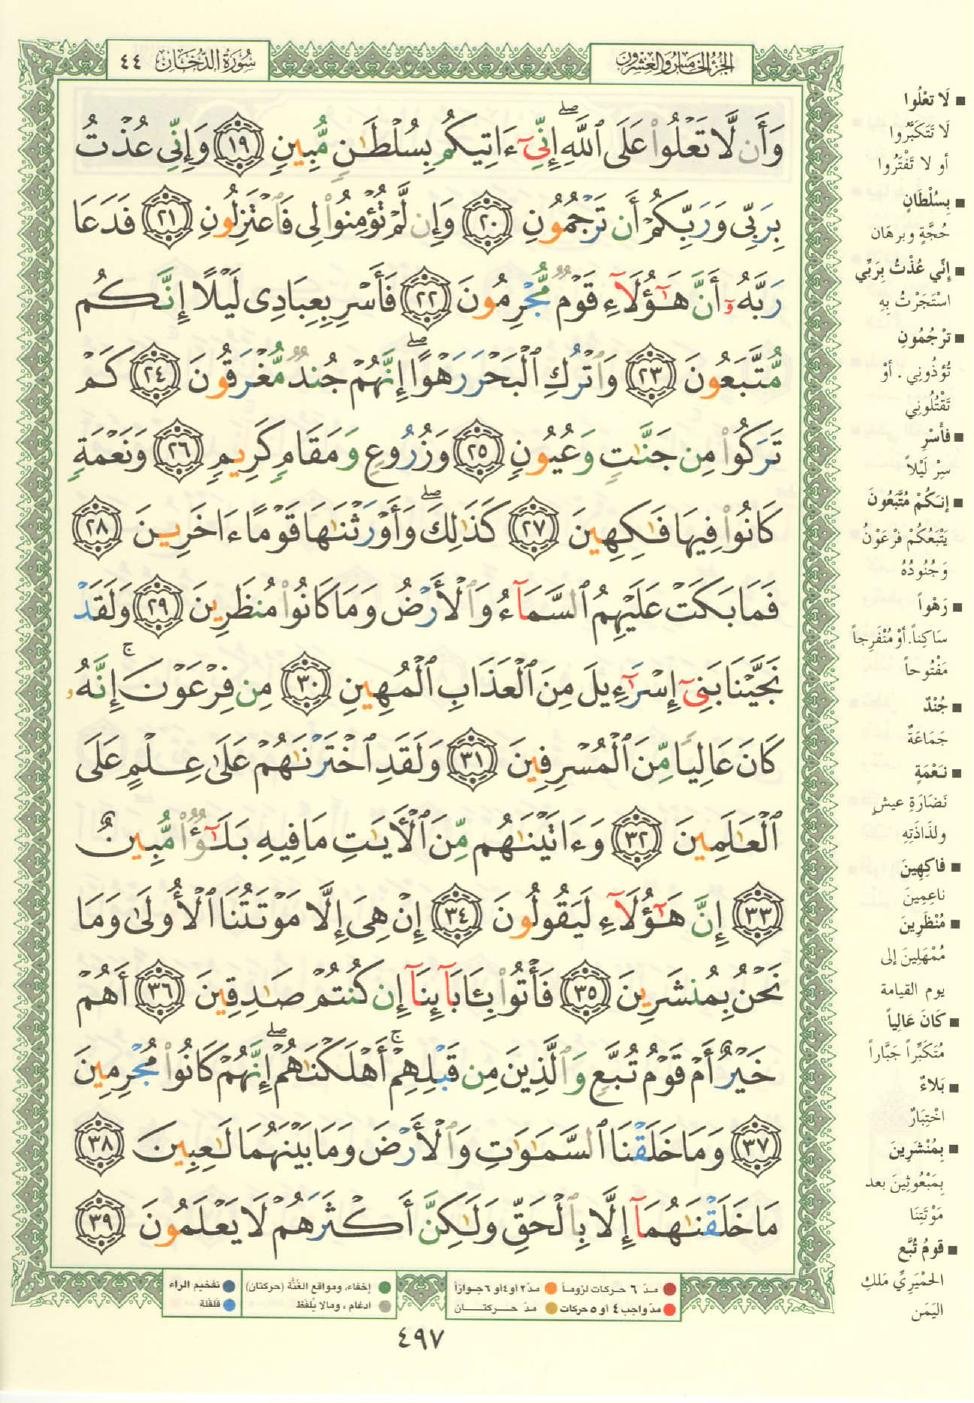 سُورَةُ الدُّخَانِ ٤٤
الجُزْءُ الخَامِسُ وَالعِشْرُونَ
وَأَن لَّا تَعْلُوا۟ عَلَى ٱللَّهِ ۖ إِنِّىٓ ءَاتِيكُم بِسُلْطَـٰنٍ مُّبِينٍ ﴿١٩﴾ وَإِنِّى عُذْتُ
بِرَبِّى وَرَبِّكُمْ أَن تَرْجُمُونِ ﴿٢٠﴾ وَإِن لَّمْ تُؤْمِنُوا۟ لِى فَٱعْتَزِلُونِ ﴿٢١﴾ فَدَعَا
رَبَّهُۥٓ أَنَّ هَـٰٓؤُلَآءِ قَوْمٌ مُّجْرِمُونَ ﴿٢٢﴾ فَأَسْرِ بِعِبَادِى لَيْلًا إِنَّكُم
مُّتَّبَعُونَ ﴿٢٣﴾ وَٱتْرُكِ ٱلْبَحْرَ رَهْوًا ۖ إِنَّهُمْ جُندٌ مُّغْرَقُونَ ﴿٢٤﴾ كَمْ
تَرَكُوا۟ مِن جَنَّـٰتٍ وَعُيُونٍ ﴿٢٥﴾ وَزُرُوعٍ وَمَقَامٍ كَرِيمٍ ﴿٢٦﴾ وَنَعْمَةٍ
كَانُوا۟ فِيهَا فَـٰكِهِينَ ﴿٢٧﴾ كَذَٰلِكَ ۖ وَأَوْرَثْنَـٰهَا قَوْمًا ءَاخَرِينَ ﴿٢٨﴾
فَمَا بَكَتْ عَلَيْهِمُ ٱلسَّمَآءُ وَٱلْأَرْضُ وَمَا كَانُوا۟ مُنظَرِينَ ﴿٢٩﴾ وَلَقَدْ
نَجَّيْنَا بَنِىٓ إِسْرَٰٓءِيلَ مِنَ ٱلْعَذَابِ ٱلْمُهِينِ ﴿٣٠﴾ مِن فِرْعَوْنَ ۚ إِنَّهُۥ
كَانَ عَالِيًا مِّنَ ٱلْمُسْرِفِينَ ﴿٣١﴾ وَلَقَدِ ٱخْتَرْنَـٰهُمْ عَلَىٰ عِلْمٍ عَلَى
ٱلْعَـٰلَمِينَ ﴿٣٢﴾ وَءَاتَيْنَـٰهُم مِّنَ ٱلْـَٔايَـٰتِ مَا فِيهِ بَلَـٰٓؤٌا۟ مُّبِينٌ
﴿٣٣﴾ إِنَّ هَـٰٓؤُلَآءِ لَيَقُولُونَ ﴿٣٤﴾ إِنْ هِىَ إِلَّا مَوْتَتُنَا ٱلْأُولَىٰ وَمَا
نَحْنُ بِمُنشَرِينَ ﴿٣٥﴾ فَأْتُوا۟ بِـَٔابَآئِنَآ إِن كُنتُمْ صَـٰدِقِينَ ﴿٣٦﴾ أَهُمْ
خَيْرٌ أَمْ قَوْمُ تُبَّعٍ وَٱلَّذِينَ مِن قَبْلِهِمْ ۚ أَهْلَكْنَـٰهُمْ ۖ إِنَّهُمْ كَانُوا۟ مُجْرِمِينَ
﴿٣٧﴾ وَمَا خَلَقْنَا ٱلسَّمَـٰوَٰتِ وَٱلْأَرْضَ وَمَا بَيْنَهُمَا لَـٰعِبِينَ ﴿٣٨﴾
مَا خَلَقْنَـٰهُمَآ إِلَّا بِٱلْحَقِّ وَلَـٰكِنَّ أَكْثَرَهُمْ لَا يَعْلَمُونَ ﴿٣٩﴾
■ لَا تَعْلُوا
لَا تَتَكَبَّرُوا
أو لا تَفْتَرُوا
■ بِسُلْطَانٍ
حُجَّةٍ وبرهان
■ إِنِّي عُذْتُ بِرَبِّي
اسْتَجَرْتُ بِهِ
■ تَرْجُمُونِ
تُؤْذُونِي. أوْ
تَقْتُلُونِي
■ فَأَسْرِ
سِرْ لَيْلاً
■ إنكُمْ مُتَّبَعُونَ
يَتْبَعُكُمْ فِرْعَوْنُ
وَجُنُودُهُ
■ رَهْواً
سَاكِناً. أوْ مُنْفَرِجاً
مَفْتُوحاً
■ جُنْدٌ
جَمَاعَةٌ
■ نَعْمَةٍ
نَضَارَةِ عيشٍ
ولذَاذَتِهِ
■ فَاكِهِينَ
ناعِمِينَ
■ مُنْظَرِينَ
مُمْهَلِينَ إلى
يوم القيامة
■ كَانَ عَالِياً
مُتَكَبِّراً جَبَّاراً
■ بَلاءٌ
اخْتِبَارٌ
■ بِمُنْشَرِينَ
بِمَبْعُوثِينَ بعد
مَوْتَتِنَا
■ قومُ تُبَّع
الحِمْيَرِيِّ مَلكِ
اليَمَن
مدّ ٦ حركات لزوماً ● مدّ ٢ او ٤ او ٦ جوازاً
مدّ واجب ٤ او ٥ حركات ● مدّ حركتان
إخفاء، ومواقع الغُنَّة (حركتان) ● تفخيم الراء
ادغام، ومالا يُلفَظ ● قلقلة
٤٩٧